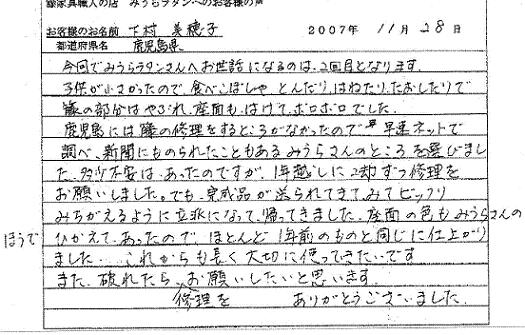 籐家具職人の店 みうらラタンへのお客様の声
お客様のお名前 下村 美穂子 2007年 11月 28日
都道府県名 鹿児島県
今回でみうらラタンさんへお世話になるのは、2回目となります。
子供が小さかったので、食べこぼしや とんだり、はねたり、たおしたりで
籐の部分はやぶれ、座面も、はげて、ボロボロでした。
鹿児島には籐の修理をするところがなかったので 早速ネットで
調べ、新聞にものられたこともあるみうらさんのところを選びまし
た。多少不安は、あったのですが、1年越しに2却ずつ修理を
お願いしました。でも、完成品が送られてきて、みてビックリ
みちがえるように立派になって、帰ってきました。座面の色もみうらさんの
ほうで ひかえて、あったので、ほとんど1年前のものと同じに仕上がり
ました... これからも長く大切に使ってきたいです
また、破れたら、お願いしたいと思います。
修理を ありがとうございました。